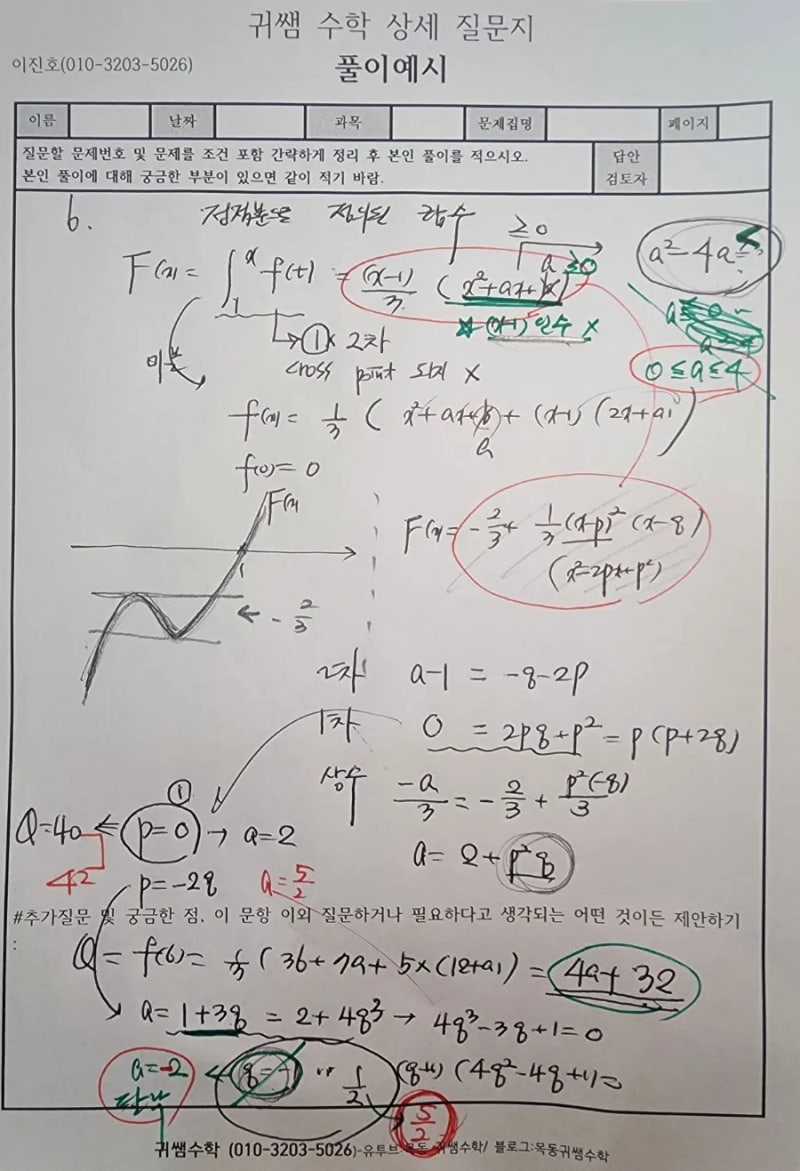 귀쌤 수학 상세 질문지
이진호(010-3203-5026)
풀이예시
이름 날짜 과목 문제집명 페이지
질문할 문제번호 및 문제를 조건 포함 간략하게 정리 후 본인 풀이를 적으시오.
본인 풀이에 대해 궁금한 부분이 있으면 같이 적기 바람.
답안
검토자
6. 정적분으로 정의된 함수
≥0
a²-4a≤
F(x) = ∫₁ˣ f(t) = (x-1)/3 (x²+ax+
a ≥0
★ (x-1) 인수 x
0≤a≤4
미분
→ ① x 2차
cross point 되지 x
f(x) = 1/3 ( x²+ax+b + (x-1)(2x+a) )
a
f(0) = 0
F(x)
1
← -2/3
F(x) = -2/3 + 1/3 (x-p)² (x-q)
(x²-2px+p²)
2차 a-1 = -q-2p
1차 0 = 2pq+p² = p(p+2q)
상수 -a/3 = -2/3 + p²(-q)/3
①
Q=40 ⇐ p=0 → a=2
42
a = 2+p²q
p=-2q a=5/2
#추가질문 및 궁금한 점, 이 문항 이외 질문하거나 필요하다고 생각되는 어떤 것이든 제안하기
:
Q = f(6) = 1/3 ( 36+7a+5×(12+a) ) = 4a+32
a = 1+3q = 2+4q³ → 4q³-3q+1=0
a=-2 ← q=-1 or 1/2 (q+1)(4q²-4q+1)=0
5/2
귀쌤수학 (010-3203-5026)-유투브:목동 귀쌤수학/ 블로그:목동귀쌤수학